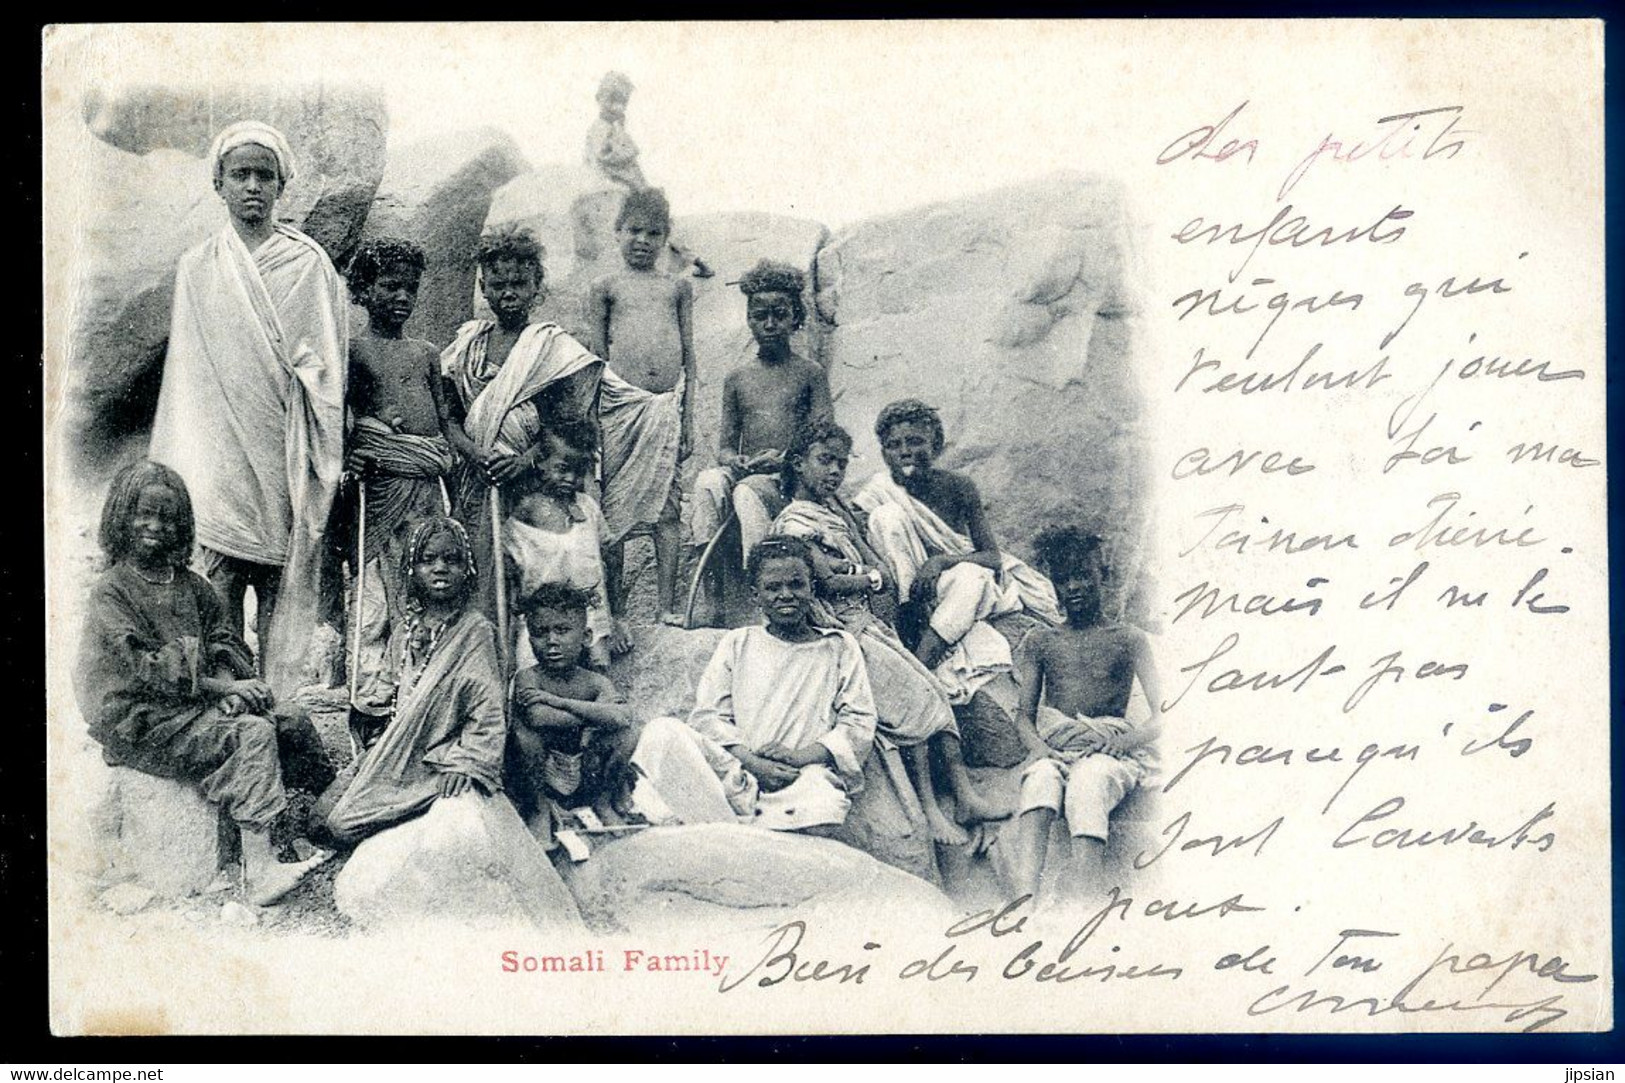 des petits
enfants
nègres qui
veulent jouer
avec toi ma
Toinon chérie.
mais il ne le
faut pas
parcequ'ils
sont couverts
de poux.
Somali Family
Bien des baisers de Ton papa
www.delcampe.net
jipsian